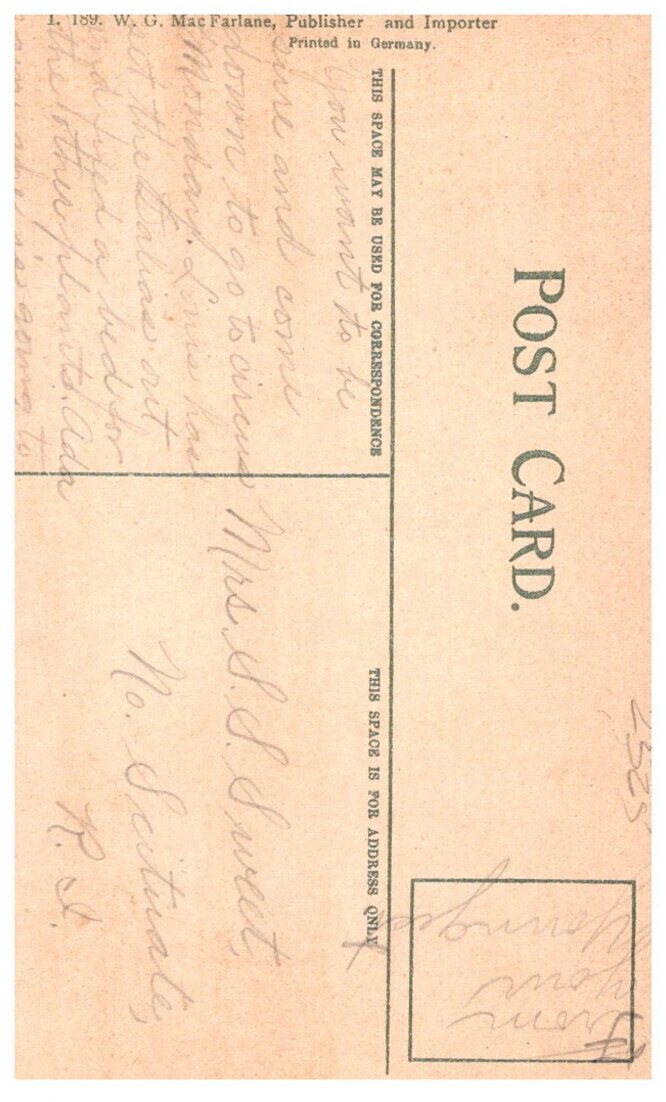 POST CARD.
THIS SPACE MAY BE USED FOR CORRESPONDENCE
THIS SPACE IS FOR ADDRESS ONLY
1. 189. W. G. MacFarlane, Publisher and Importer
Printed in Germany.
You want to be
sure and come
down to go to circus
Monday. Louis has
the Dalias out
and fixed a bed for
the other plants. Ada
she is going to
Mrs. S. S. Sweet,
No. Scituate,
R. I.
2325
From
your